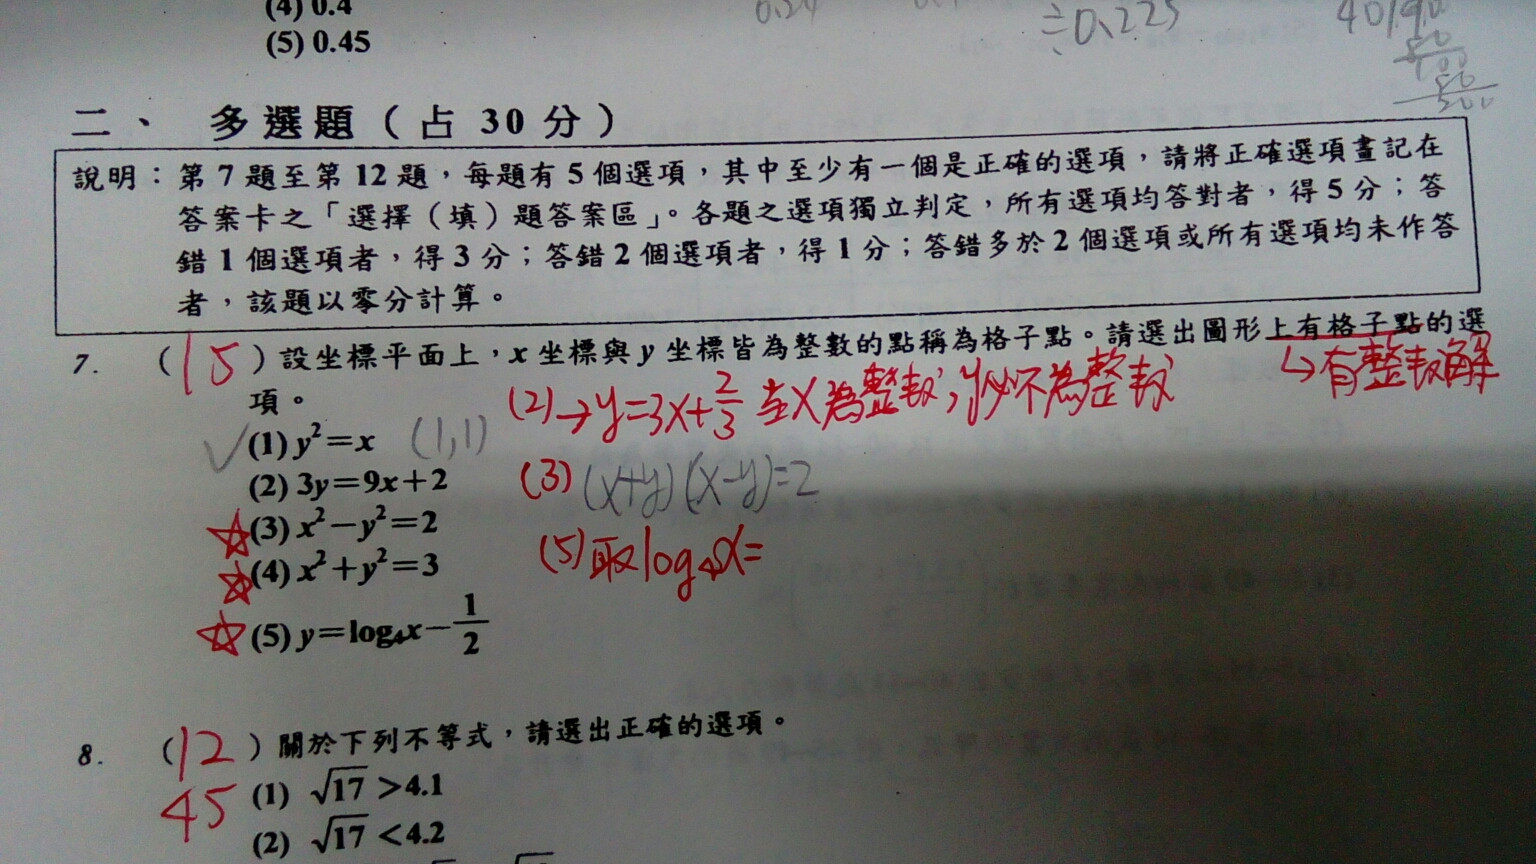 (4) 0.4
(5) 0.45
≑0.225
二、 多選題（占 30 分）
說明：第 7 題至第 12 題，每題有 5 個選項，其中至少有一個是正確的選項，請將正確選項畫記在
答案卡之「選擇（填）題答案區」。各題之選項獨立判定，所有選項均答對者，得 5 分；答
錯 1 個選項者，得 3 分；答錯 2 個選項者，得 1 分；答錯多於 2 個選項或所有選項均未作答
者，該題以零分計算。
7. （15）設坐標平面上，x 坐標與 y 坐標皆為整數的點稱為格子點。請選出圖形上有格子點的選
項。
↳有整數解
(2)→y=3x+2/3 當x為整數，y必不為整數
✓(1) y²=x (1,1)
(2) 3y=9x+2
(3) (x+y)(x-y)=2
☆(3) x²−y²=2
☆(4) x²+y²=3
(5)取log₄x=
☆(5) y=log₄x−1/2
8. （12）關於下列不等式，請選出正確的選項。
45
(1) √17 >4.1
(2) √17 <4.2